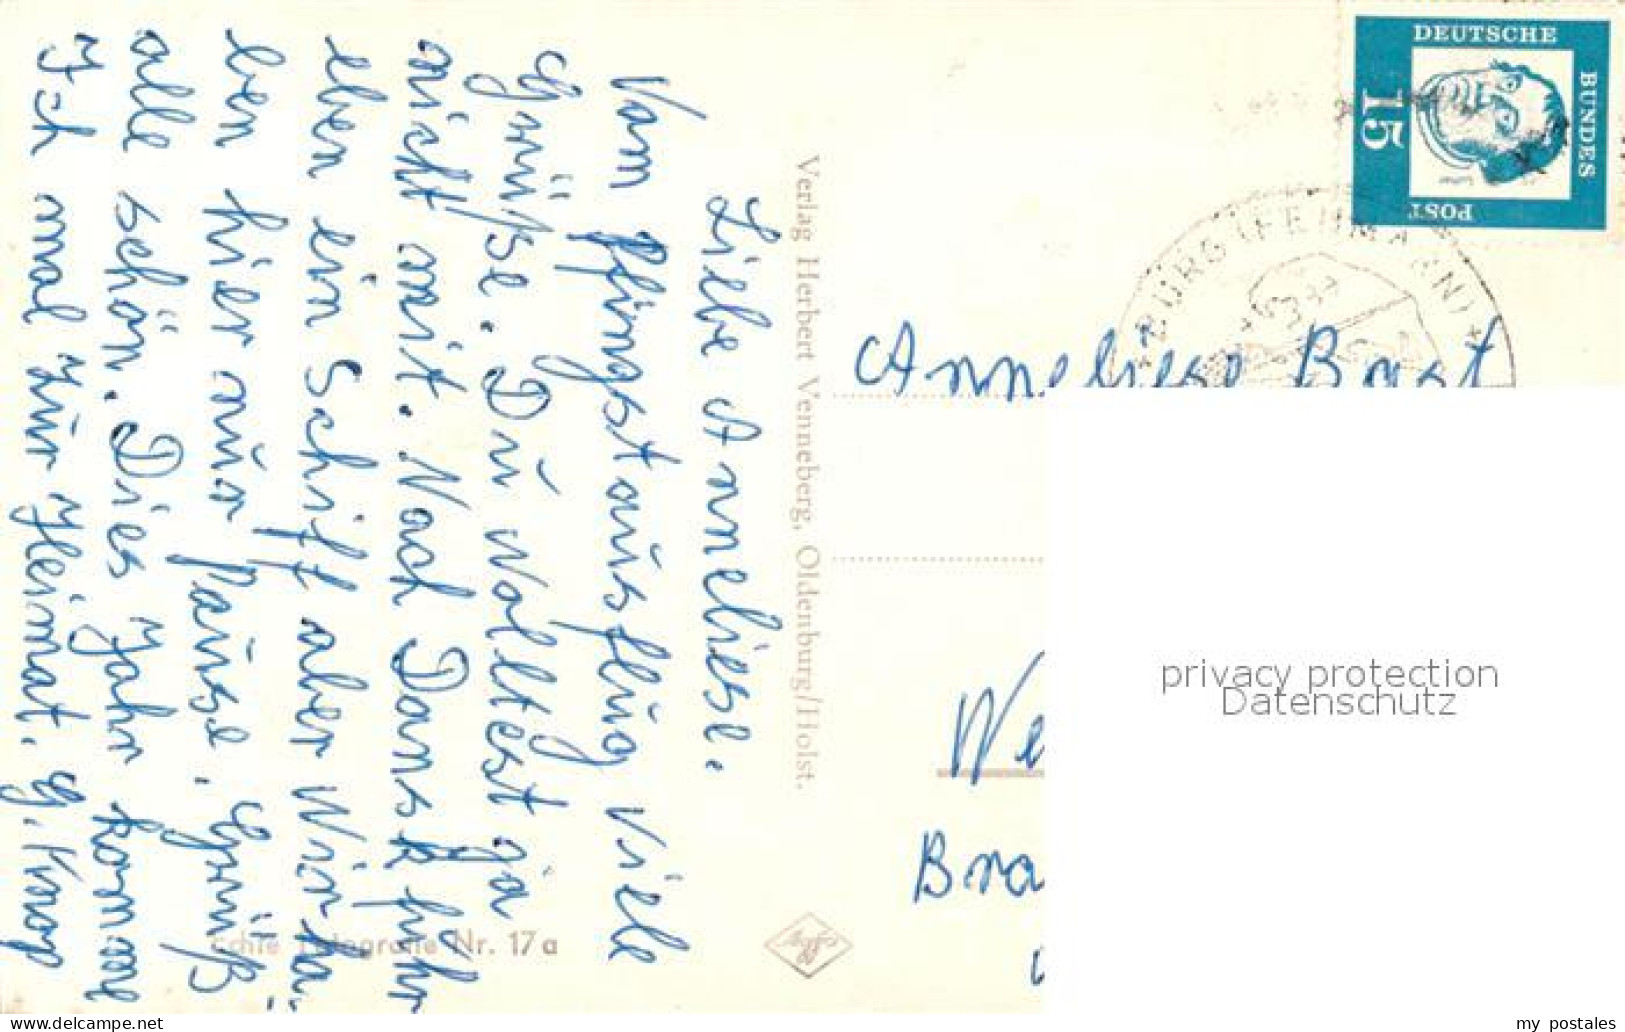 Liebe Anneliese.
Vom Pfingstausflug viele
Grüße. Du wolltest ja
nicht mit. Nach Dansk fuhr
eben ein Schiff aber Wir ha-
ben hier nur Pause. Grüß
alle schön. Dies Jahr komme
Ich mal zur Heimat. G. Knoop
Verlag Herbert Venneberg, Oldenburg/Holst.
Echte Fotografie Nr. 17a
Agfa
DEUTSCHE
BUNDES
POST
15
Luther
BURG (FEHMARN)
Anneliese Brast
We
Bra
privacy protection
Datenschutz
www.delcampe.net
my_postales